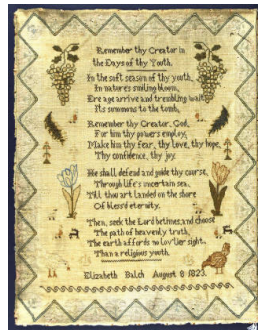 Remember thy Creator in
the Days of thy Youth.
In the soft season of thy youth,
In nature's smiling bloom,
Ere age arrive and trembling wait
Its summons to the tomb,
Remember thy Creator, God,
For him thy powers employ,
Make him thy fear, thy love, thy hope,
Thy confidence, thy joy.
He shall defend and guide thy course,
Through life's uncertain sea,
Till thou art landed on the shore
Of blessd eternity.
Then, seek the Lord betimes, and choose
The path of heavenly truth,
The earth affords no lovlier sight,
Than a religious youth.
Elizabeth Balch August 8 1823